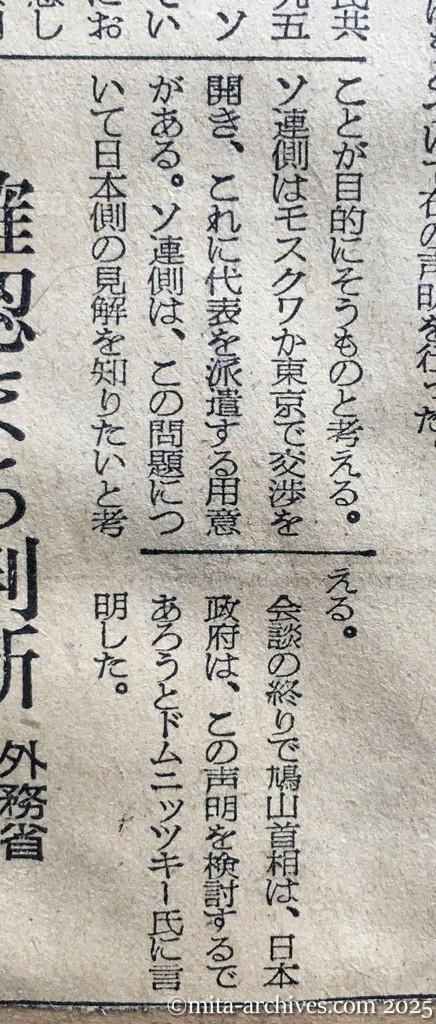 右の声明を行った
民共
九五
ソ
てい
にお
ことが目的にそうものと考える。
ソ連側はモスクワか東京で交渉を
開き、これに代表を派遣する用意
がある。ソ連側は、この問題につ
いて日本側の見解を知りたいと考
える。
会談の終りで鳩山首相は、日本
政府は、この声明を検討するで
あろうとドムニッツキー氏に言
明した。
確認を
判断
外務省
©mita-archives.com 2025